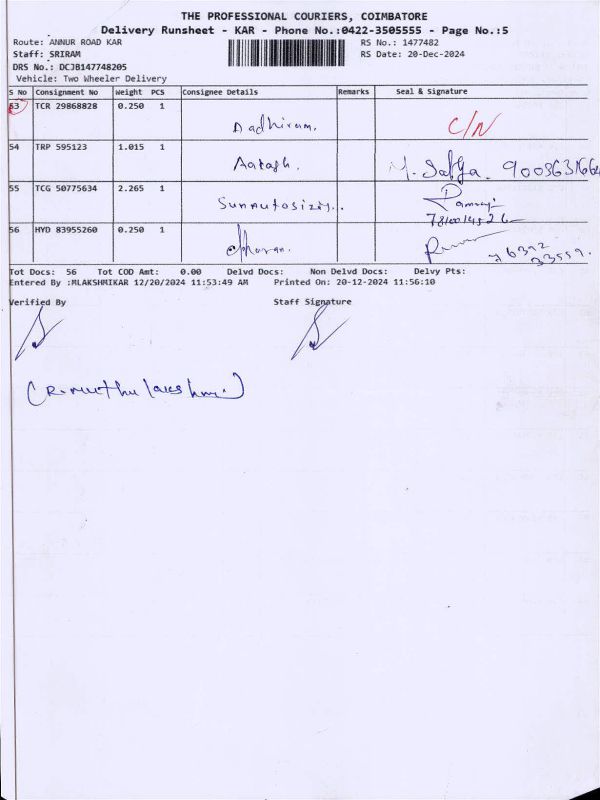 THE PROFESSIONAL COURIERS, COIMBATORE
Delivery Runsheet - KAR - Phone No.:0422-3505555 - Page No.:5
Route: ANNUR ROAD KAR RS No.: 1477482
Staff: SRIRAM RS Date: 20-Dec-2024
DRS No.: DCJB147748205
Vehicle: Two Wheeler Delivery
S No Consignment No Weight PCS Consignee Details Remarks Seal & Signature
53 TCR 29868828 0.250 1 C/N
54 TRP 595123 1.015 1 Aakash. M. Sathya.
55 TCG 50775634 2.265 1
56 HYD 83955260 0.250 1 76392 33559.
Tot Docs: 56 Tot COD Amt: 0.00 Delvd Docs: Non Delvd Docs: Delvy Pts:
Entered By :MLAKSHMIKAR 12/20/2024 11:53:49 AM Printed On: 20-12-2024 11:56:10
Verified By Staff Signature
(R. Muthu lakshmi)